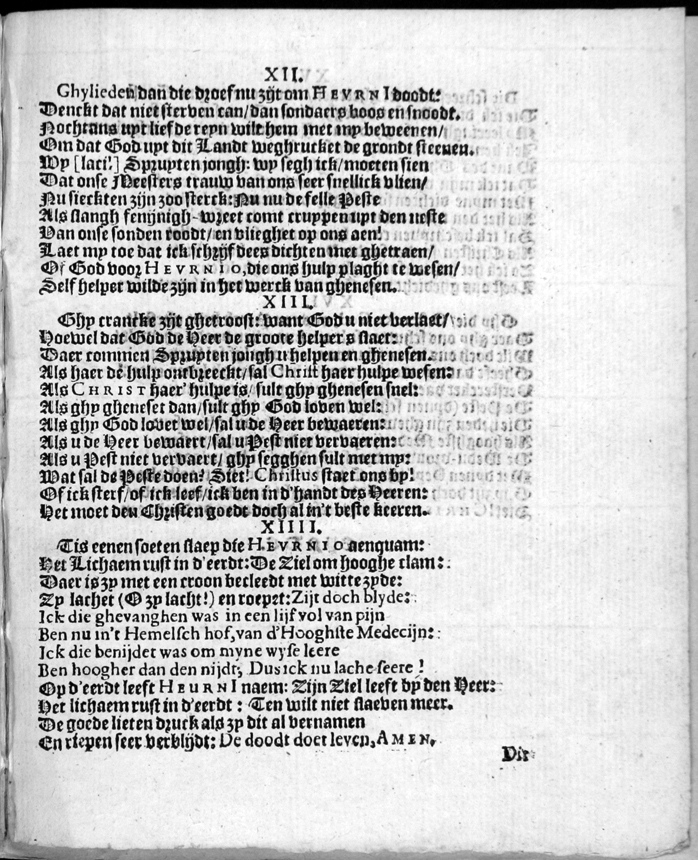 XII.
Ghylieden dan die droef nu zijt om HEVRNI doodt:
Denckt dat niet sterven can/ dan sondaers boos en snoodt.
Nochtans uyt lief de reyn wilt hem met my beweenen/
Om dat God uyt dit Landt weghrucket de grondt steenen.
Wy [laci!] Spruyten jongh: wy segh ick/ moeten sien
Dat onse Meesters trauw van ons seer snellick vlien/
Nu sieckten zijn zoo sterck: Nu nu de felle Peste
Als slangh fenijnigh-wreet comt cruypen uyt den neste
Van onse sonden roodt/ en vlieghet op ons aen!
Laet my toe dat ick schrijf dees dichten met ghetraen/
Of God voor HEVRNIO, die ons hulp plaght te wesen/
Self helper wilde zijn in het werck van ghenesen.
XIII.
Ghy crancke zijt ghetroost: want God u niet verlaet/
Hoewel dat God de Heer de groote helpers slaet:
Daer commen Spruyten jongh u helpen en ghenesen.
Als haer dē hulp ontbreeckt/ sal Christ haer hulpe wesen:
Als CHRIST haer' hulpe is/ sult ghy ghenesen snel:
Als ghy gheneset dan/ sult ghy God loven wel:
Als ghy God lovet wel/ sal u de Heer bewaeren:
Als u de Heer bewaert/ sal u Pest niet vervaeren:
Als u Pest niet vervaert/ ghy segghen sult met my:
Wat sal de Peste doen? Siet! Christus staet ons by!
Of ick sterf/ of ick leef/ ick ben in d'handt des Heeren:
Het moet den Christen goedt doch al in't beste keeren.
XIIII.
Tis eenen soeten slaep die HEVRNIO aenquam:
Het Lichaem rust in d'eerdt: De Ziel om hooghe clam:
Daer is zy met een croon becleedt met witte zyde:
Zy lachet (O zy lacht!) en roepet: Zijt doch blyde:
Ick die ghevanghen was in een lijf vol van pijn
Ben nu in't Hemelsch hof, van d'Hooghste Medecijn:
Ick die benijdet was om myne wyse leere
Ben hoogher dan den nijdt; Dus ick nu lache seere!
Op d'eerdt leeft HEURNI naem: Zijn Ziel leeft by den Heer:
Het lichaem rust in d'eerdt: Ten wilt niet slaeven meer.
De goede lieten druck als zy dit al vernamen
En riepen seer verblijdt: De doodt doet leven, AMEN.
Dit